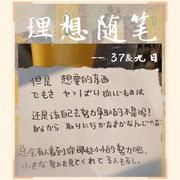 理想随笔
-- 37&九日
但是 想要的东西
でもさ やっぱり欲しいものは
还是该自己去努力争取的不是吗?
自分から 取りに行かなきゃなんないの
总会有人看到你那些小的努力吧,
小さな努力を見てくれてる人もるし。